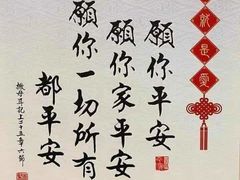 願你平安
願你家平安
願你一切所有
都平安
撒母耳記上二十五章六節
就是愛